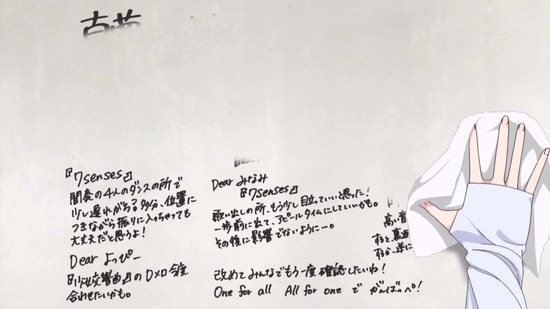 『7senses』
間奏の4人のダンスの所で
少し遅れがち？多分、位置に
つきながら振りに入っちゃっても
大丈夫だと思うよ！
Dear よっぴー
『少女交響曲』のDメロ今度
合わせたいかも。
Dear みなみ
『7senses』
歌い出しの所、もう少し目立っていいと思った！
一歩前に出て、アピールタイムにしていいかも。
その後に影響でないように〜。
改めてみんなでもう一度確認したいね！
One for all All for one で がんばっぺ！
高音